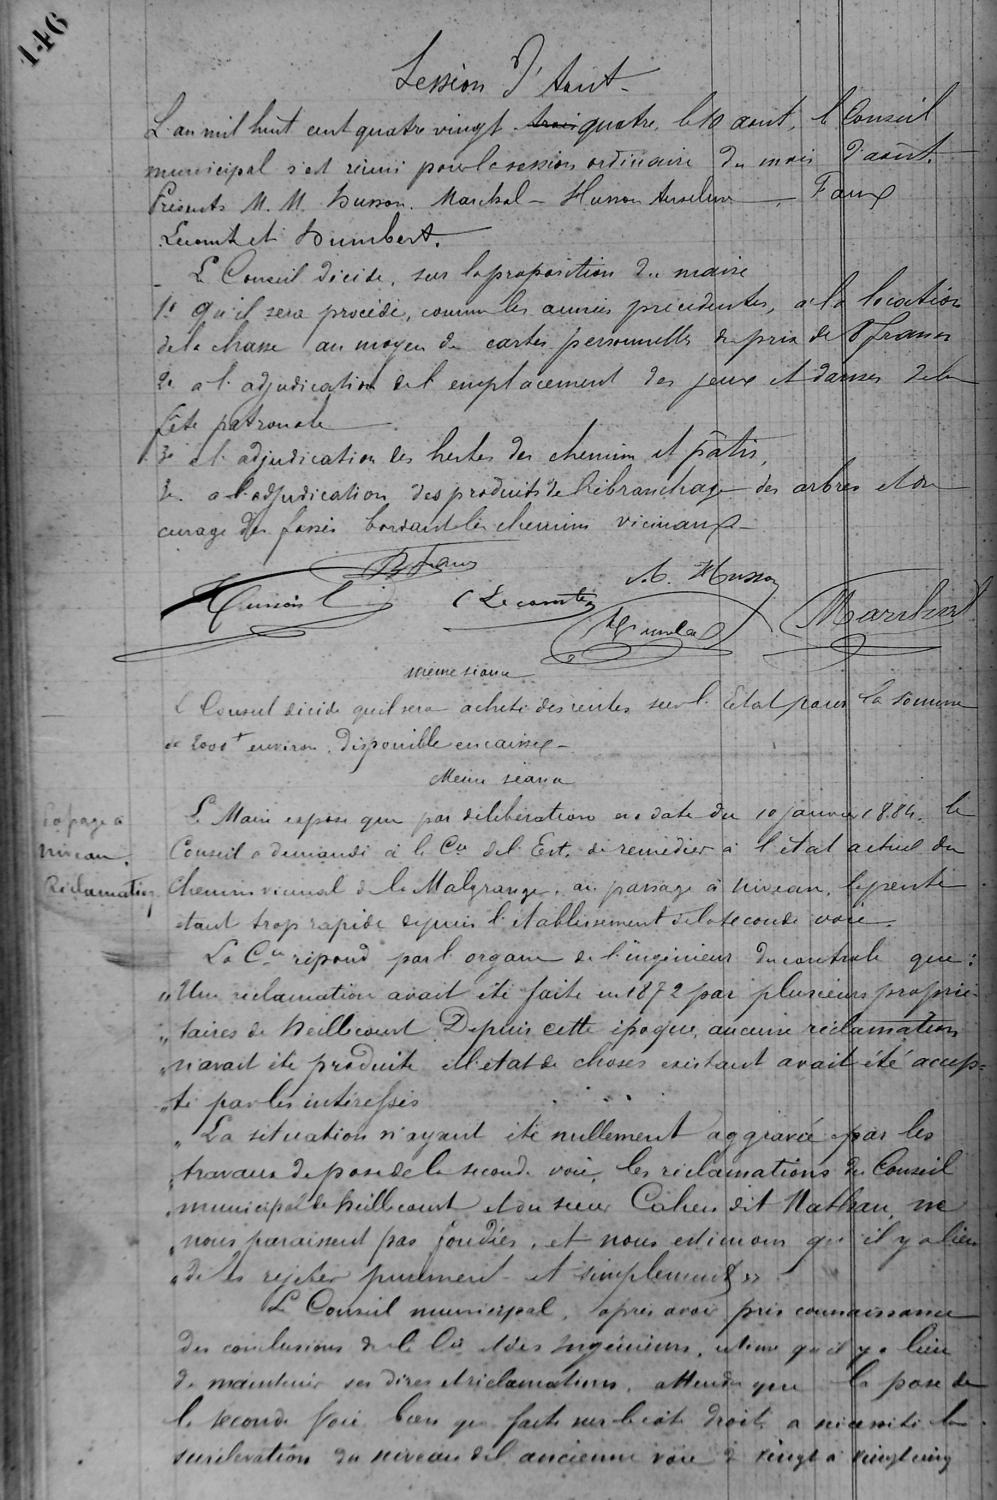 146
Session d'Aout
L'an mil huit cent quatre vingt trois quatre, le 10 aout, le Conseil
municipal s'est réuni pour la session ordinaire du mois d'août.
Présents M. M. Husson. Marchal - Husson Anselme, Faux
Lecomte et Humbert.
Le Conseil décide, sur la proposition du maire
1° qu'il sera procédé, comme les années précédentes, à la location
de la chasse au moyen de cartes personnelles du prix de 8 francs
2° a l'adjudication de l'emplacement des jeux et danses de la
fête patronale
3° et l'adjudication des herbes des chemins et pâtis,
4° a l'adjudication des produits de l'ébranchage des arbres et du
curage des fossés bordant les chemins vicinaux -
Faux
Husson
Lecomte
A. Husson
Humbert
Marchal
même séance
Le Conseil décide qu'il sera acheté des rentes sur l'Etat pour la somme
de 2000 f environ, disponible en caisse -
Même séance
Passage à
niveau.
Réclamation
Le Maire expose que par délibération en date du 10 janvier 1884, le
Conseil a demandé à la Cie de l'Est, de remédier à l'état actuel du
Chemin vicinal de la Malgrange, au passage à niveau, la pente
étant trop rapide depuis l'établissement de la seconde voie.
La Cie répond par l'organe de l'ingénieur du controle que :
„ Une réclamation avait été faite en 1872 par plusieurs proprié-
„ taires de heillecourt. Depuis cette époque, aucune réclamation
„ n'avait été produite et l'état de choses existant avait été accep-
„ té par les intéressés
„ La situation n'ayant été nullement aggravée par les
„ travaux de pose de la seconde voie, les réclamations du Conseil
„ municipal de heillecourt et du sieur Cahen dit Nathan, ne
„ nous paraissent pas fondées, et nous estimons qu'il y a lieu
„ de les rejeter purement et simplement »
Le Conseil municipal, après avoir pris connaissance
des conclusions de la Cie et des Ingénieurs, estime qu'il y a lieu
de maintenir ses dires et réclamations, attendu que la pose de
la seconde voie bien que faite sur le côté droit, a nécessité la
surélévation du niveau de l'ancienne voie de vingt à vingt cinq